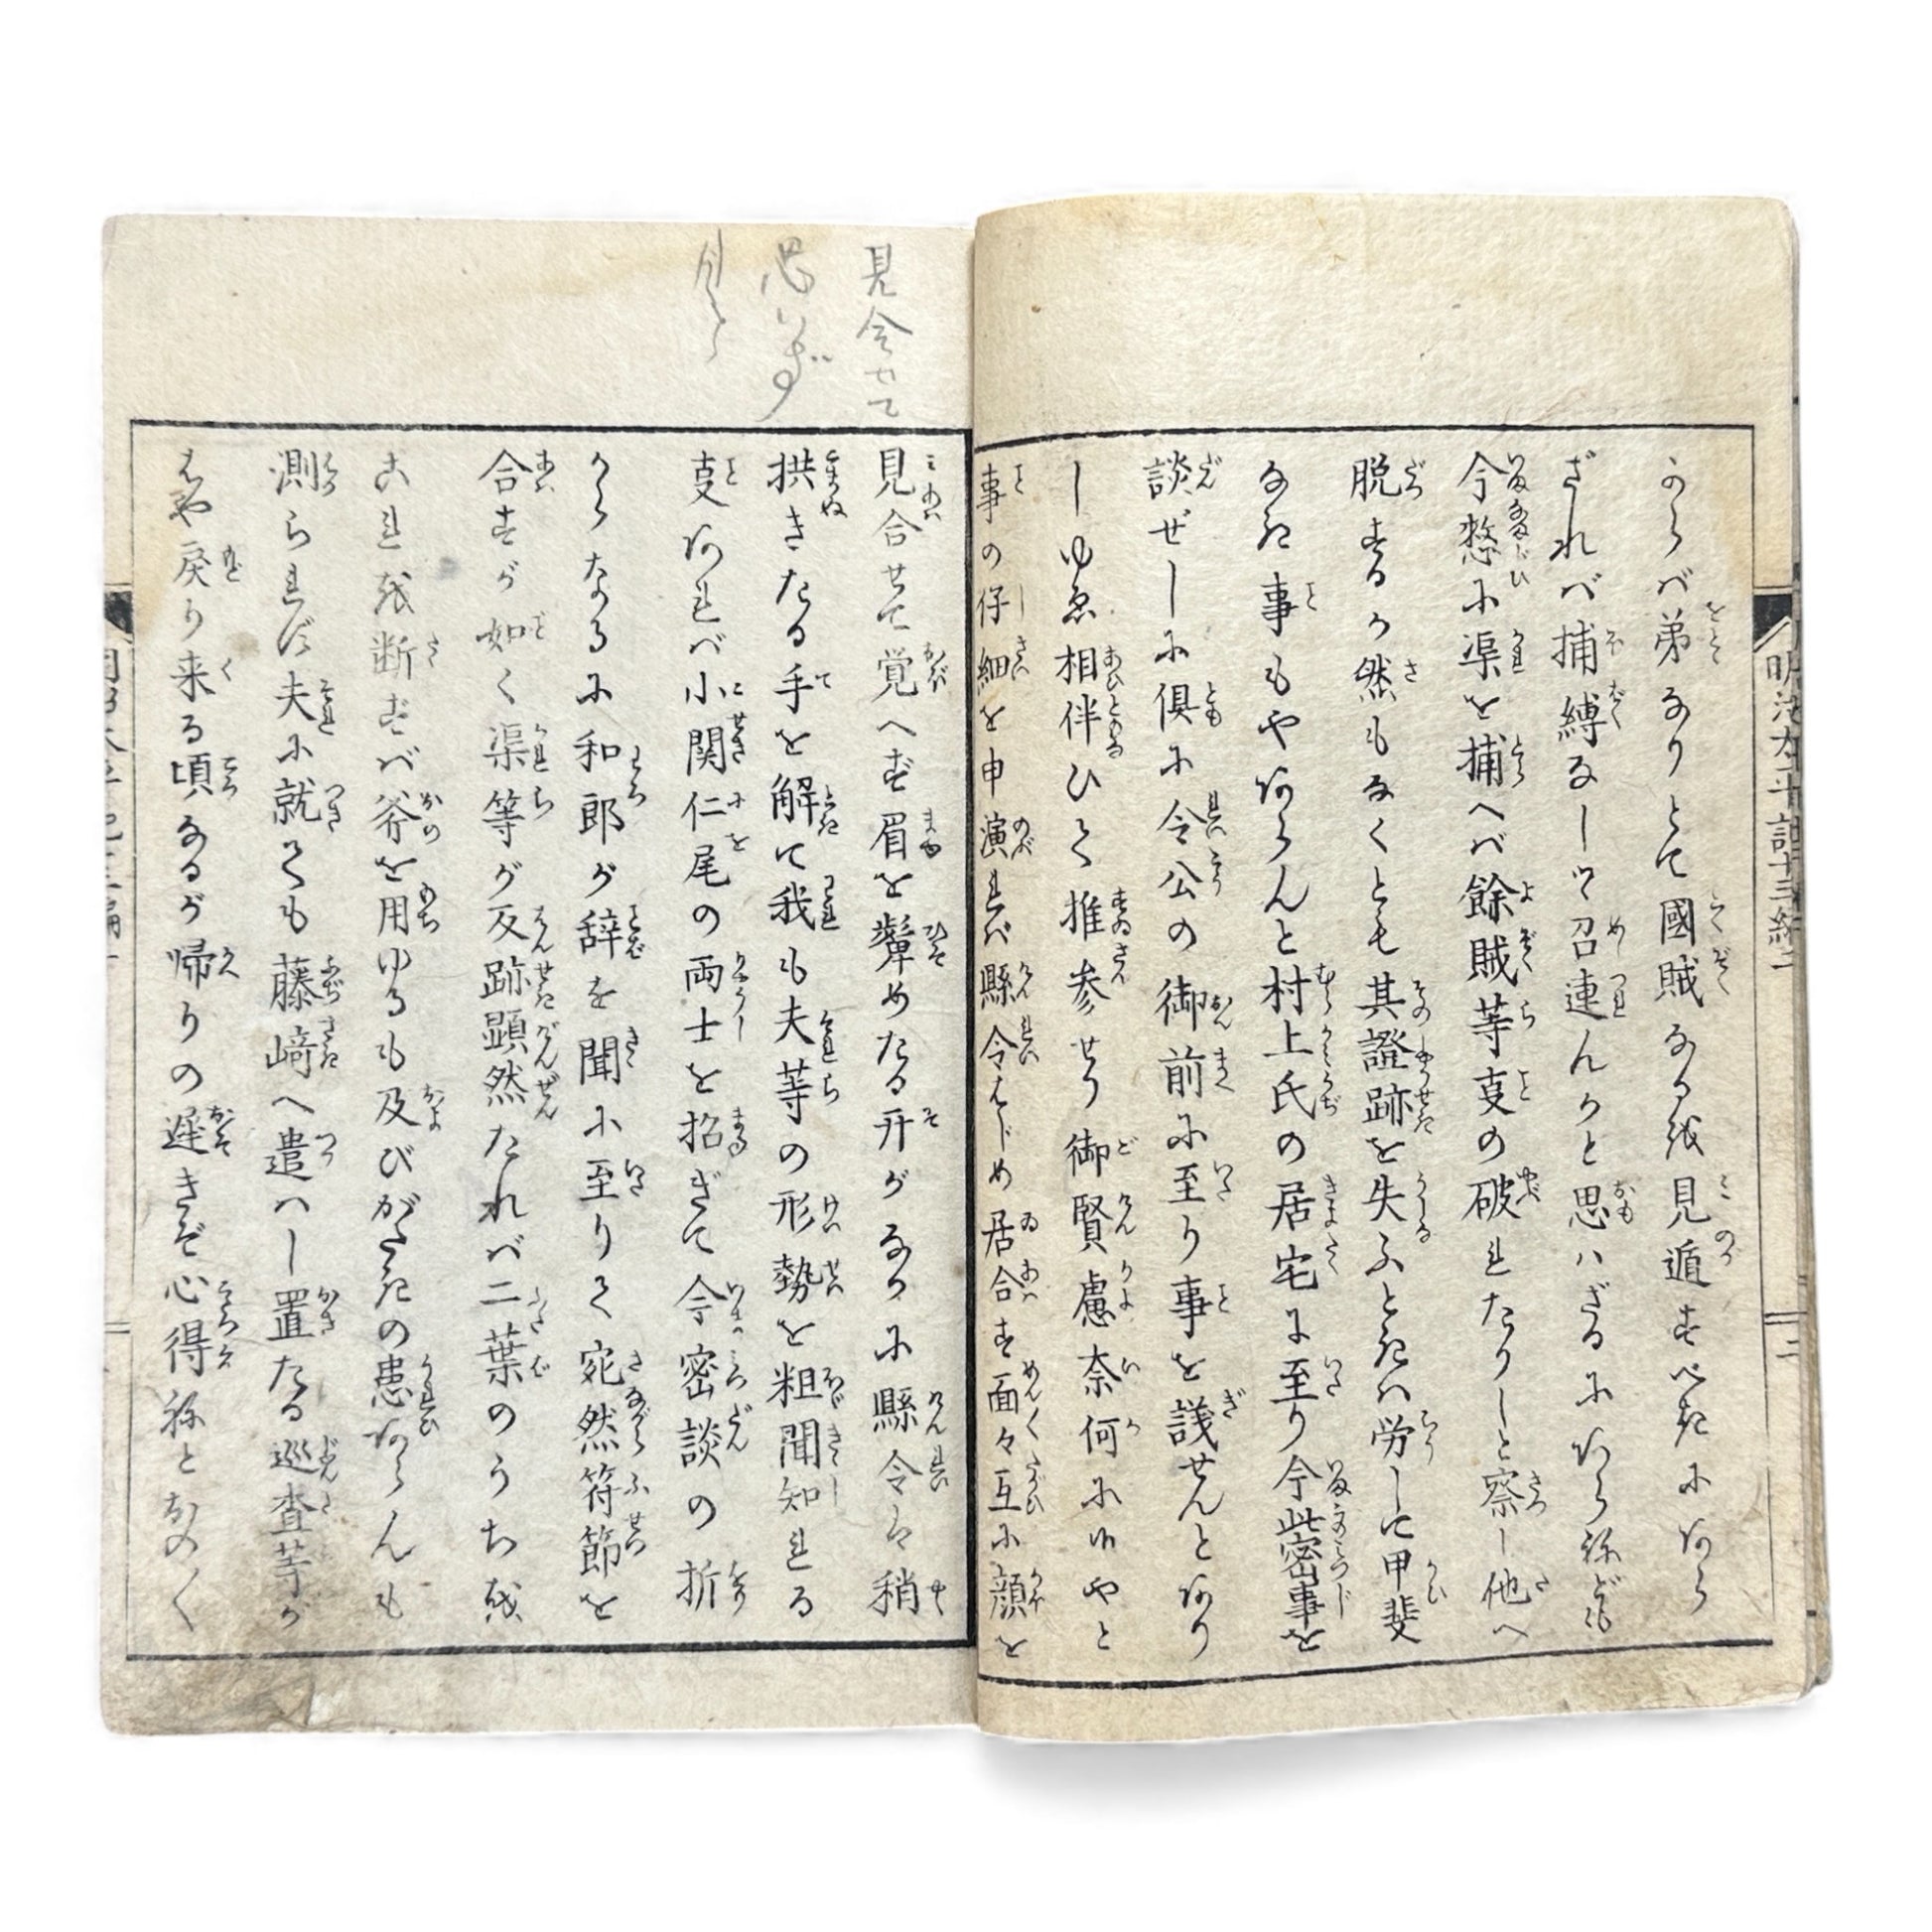 からバ弟なりとて國賊なるを見遁すべきにあら
ざれバ捕縛なしつ召連んかと思ハざるにあらねども
今憖に渠を捕へバ餘賊等㕝の破れたりしと察し他へ
脱するか然もなくとも其證跡を失ふときハ労しに甲斐
なき事もやあらんと村上氏の居宅に至り今此密事を
談ぜしに倶に令公の御前に至り事を議せんとあり
しゆゑ相伴ひて推参せり御賢慮奈何に候やと
事の仔細を申演れバ縣令はじめ居合す面々互に顔を
見合せて覚へず眉を顰めたる开がなかに縣令ハ稍
拱きたる手を解て我も夫等の形勢を粗聞知れる
㕝あれバ小関仁尾の両士を招ぎて今密談の折
からなるに和郎が辞を聞に至りて宛然符節を
合すが如く渠等が反跡顕然たれバ二葉のうちを
これを断ずバ斧を用ゆるも及びがたきの患あらんも
測られず夫に就ても藤﨑へ遣ハし置たる巡査等が
はや戻り来る頃なるが帰りの遅きぞ心得ねとなのく
明治太平記十三編二
二
見合せて
思いず